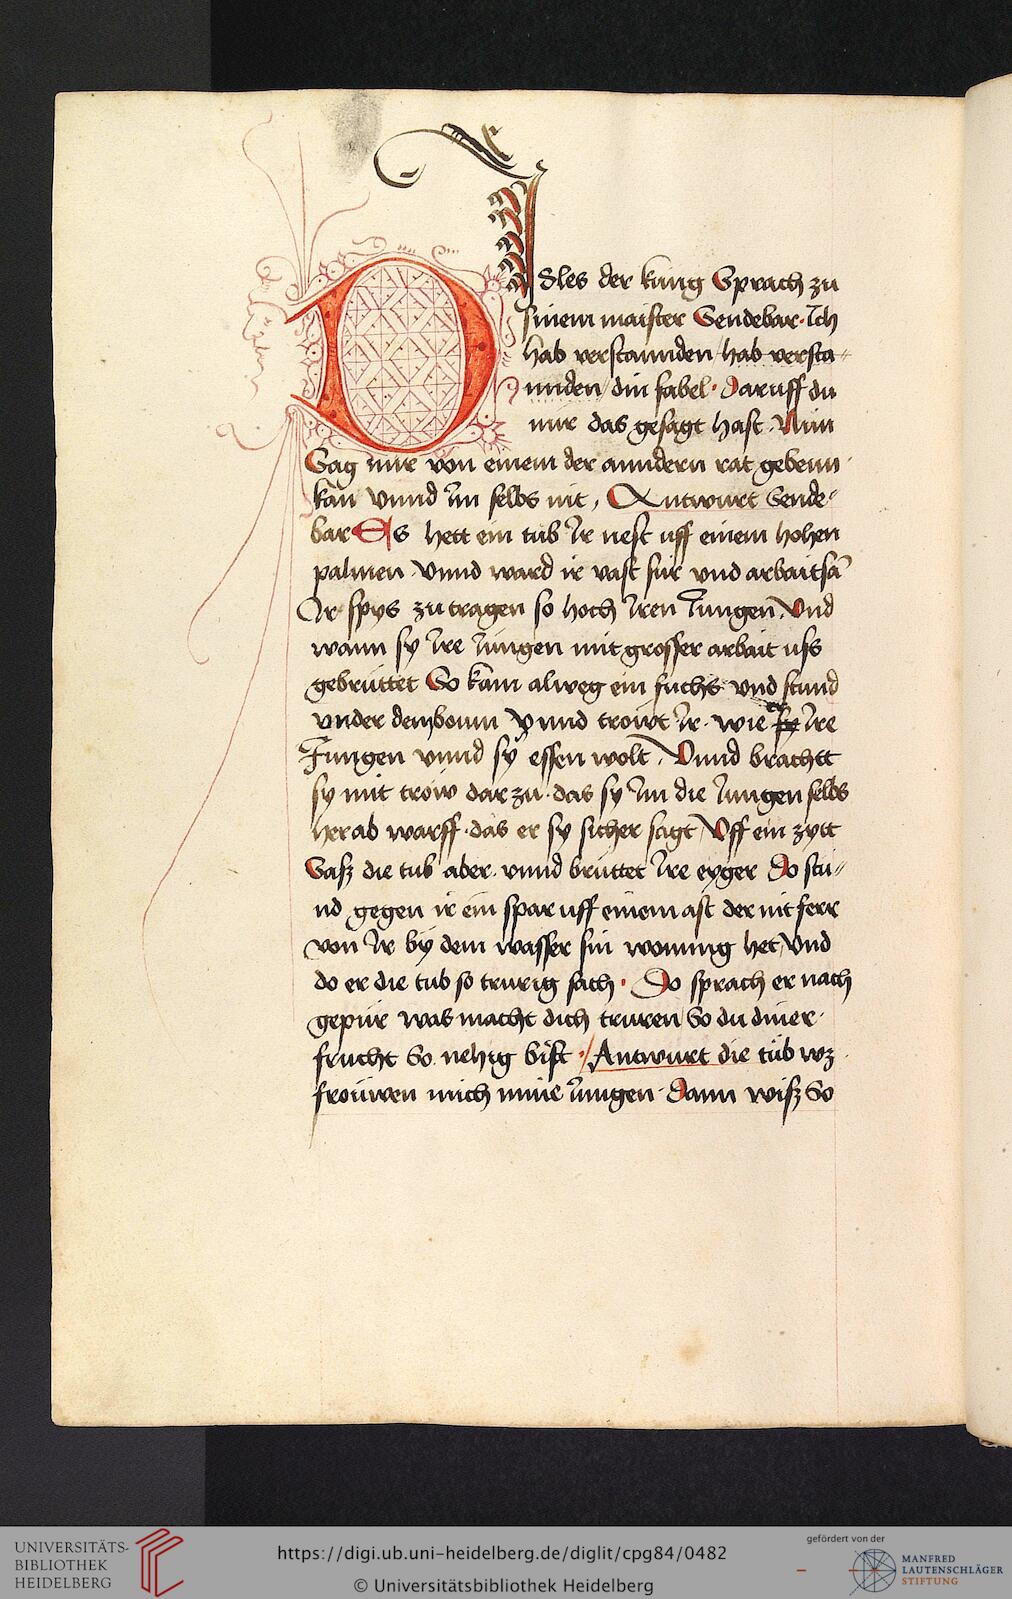 DJsles der kung Sprach zu
sinem maister Sendebar · Ich
hab verstannden / hab versta-
nnden / din fabel · Daruff du
mir das gesagt hast · Nun
Sag mir von einem der anndern rat gebenn ·
kan vnnd Im selbs nit / Antwurt Sende-
bar Es hett ein tub Ir nest uff einem hohen
palmen · Vnnd ward ir vast sur vnd arbaitsā
Ir spys zu tragen so hoch Iren Iungen · Vnd
wann sy Ire Iungen mit grosser arbait uss
gebruttet So kam alweg ein fuchs vnd stund
vnder dem boum Vnnd trowt Ir · wie er sy Ire
Jungen vnnd sy essen wolt / Vnnd brachtt
sy mit trow dar zu · das sy Im die Iungen selbs
herab warff · das er sy sicher sagt / Vff ein zytt
Sasz die tub aber · vnnd bruttet Ire eyger Do stu-
nd gegen ir ein spar uff einem ast der nit ferr
von Ir by dem wasser sin wonung het / Vnd
do er die tub so trurig sach · Do sprach er nach
gepur was macht dich truren / So du diner ·
frucht So nehig bist · / Antwurt die tub wz ·
frouwen mich mine Iungen · Dann wisz So
UNIVERSITÄTS-
BIBLIOTHEK
HEIDELBERG
https://digi.ub.uni-heidelberg.de/diglit/cpg84/0482
© Universitätsbibliothek Heidelberg
gefördert von der
MANFRED
LAUTENSCHLÄGER
STIFTUNG